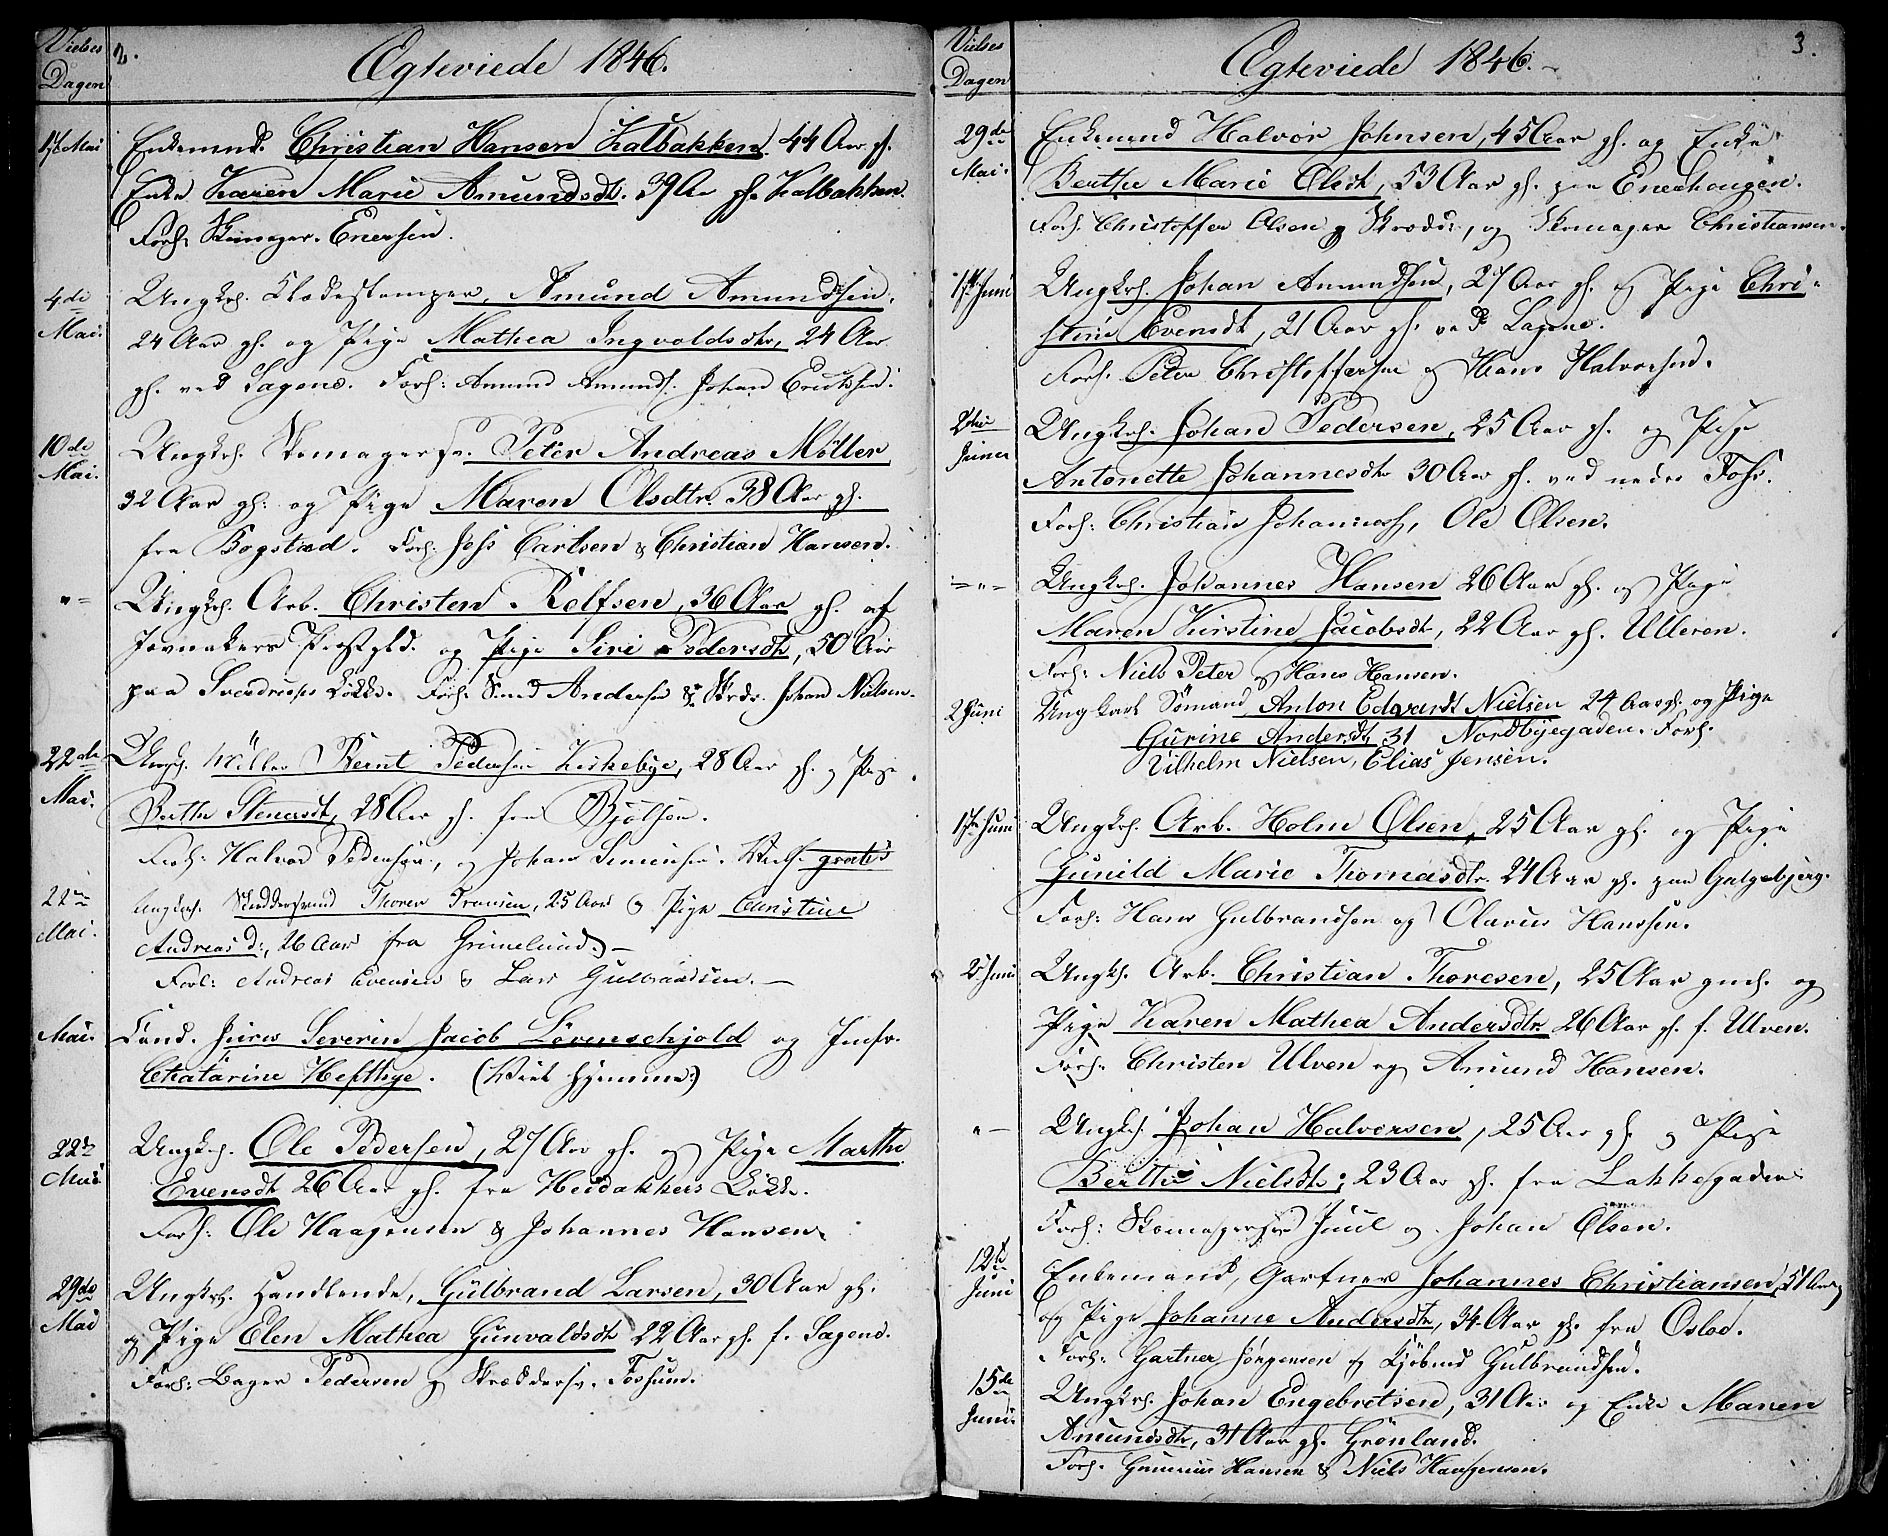 Vielses
Dagen
2.
Ægteviede 1846.
1ste Mai
Enkemnd. Christian Hansen Kalbakken. 44 Aar gl.
Enke Karen Marie Amundsdt. 39 Aa gl. Kalbakken.
Forl: Skomager. Enersen.
4de Mai.
Ungkrl. Klædestamper, Amund Amundsen,
24 Aar gl. og Pige Mathea Ingvoldsdtr, 24 Aar
gl. ved Sagene. Forl: Amund Amunds. Johan Eriksen.
10de Mai.
Ungkrl. Skomagersv. Peter Andreas Möller
32 Aar gl: og Pige Maren Olsdtr. 38 Aar gl.
fra Bogstad. Forl: Johs Carlsen & Christian Hansen.
" =
Ungkrl. Arb. Christen Rolfsen, 36 Aar gl. af
Jevnakers Prstgld. og Pige Siri Pedersdtr, 50 Aar
paa Svendrups Løkke. Forl: Smed Andersen & Skrdr. Johan Nielsen.
22de Mai.
Ungk. Möller Bernt Pedersen Kirkebye, 28 Aar gl. og Pige
Berthe Stenersdt, 28 Aar gl. fra Bjølsen.
Forl: Halvor Pedersen, og Johan Simensen. gratis
22de Mai.
Ungkrl. Skreddersvend Thorer Fransen, 25 Aar & Pige Christine
Andreasd:, 26 Aar fra Grimelund. —
Forl: Andreas Evensen & Lars Gulbrandsen. —
Mai.
Cand. juris Severin Jacob Lövenschjold og Jmfr.
Chatarine Hefthye. (Viet hjemme.)
22de Mai
Ungkrl. Ole Pedersen, 27 Aar gl. og Pige Marthe
Evensdt 26 Aar gl. fra Heidakkers Løkke.
Forl: Ole Haagensen & Johannes Hansen.
29de Mai
Ungkrl. Handlende, Gulbrand Larsen, 30 Aar gl.
og Pige Elen Mathea Gunvaldsdt 22 Aar gl. f. Sagene.
Forl: Bager Pedersen og Skræddersv. Fossum.
Vielses
Dagen
Ægteviede 1846. —
3.
29de Mai.
Enkemand Halvor Johnsen, 45 Aar gl. og Enke
Berthe Marie Olsdt, 53 Aar gl. paa Enerhaugen.
Forl. Christoffer Olsen Skrædd:, og Skomager Christiansen.
1ste Juni
Ungkrl. Johan Amundsen, 27 Aar gl. og Pige Chri-
stine Evensdt, 21 Aar gl. ved Sagene.
Forl. Peter Christoffersen og Hans Halvorsen.
2den Juni
Ungkrl. Johan Pedersen, 25 Aar gl. og Pige
Antonette Johannesdtr 30 Aar gl. ved nedre Foss.
Forl: Christian Johanness, Ole Olsen.
= " =
Ungkrl. Johannes Hansen 26 Aar gl. og Pige
Maren Kirstine Jacobsdt, 22 Aar gl. Ulleren.
Forl: Niels Peter og Hans Hansen.
2 Juni
Ungkarl Sømand, Anton Edvardt Nielsen 24 Aar gl. og Pige
Gurine Andersdt, 31 Nordbyegaden. Forl.
Vilhelm Nielsen, Elias Jensen.
1ste Juni
Ungkrl. Arb. Holm Olsen, 25 Aar gl. og Pige
Gunild Marie Thomasdtr. 24 Aar gl. paa Galgebjerg.
Forl: Hans Gulbrandsen og Olavus Hanssen.
2 Juni
Ungkl. Arb. Christian Thoresen, 25 Aar gml. og
Pige Karen Mathea Andersdtr. 26 Aar gl. f. Ulven.
Forl: Christen Ulven og Amund Hansen.
" —
Ungkl. Johan Halvorsen, 25 Aar gl. og Pige
Berthe Nielsdt, 23 Aar gl. fra Lakkegaden
Forl: Skomagersv Juul og Johan Olsen.
12te Juni
Enkemand, Gartner Johannes Christiansen, 51 Aar
og Pige Johanne Andersdtr, 34 Aar gl. fra Osloe.
Forl: Gartner Jørgensen og Kjøbmd Gulbrandsen.
15de Juni.
Ungkrl. Johan Engebretsen, 31 Aar og Enke Maren
Amundsdtr, 31 Aar gl. Grönland.
Forl. Gunerius Hansen & Niels Haagensen.